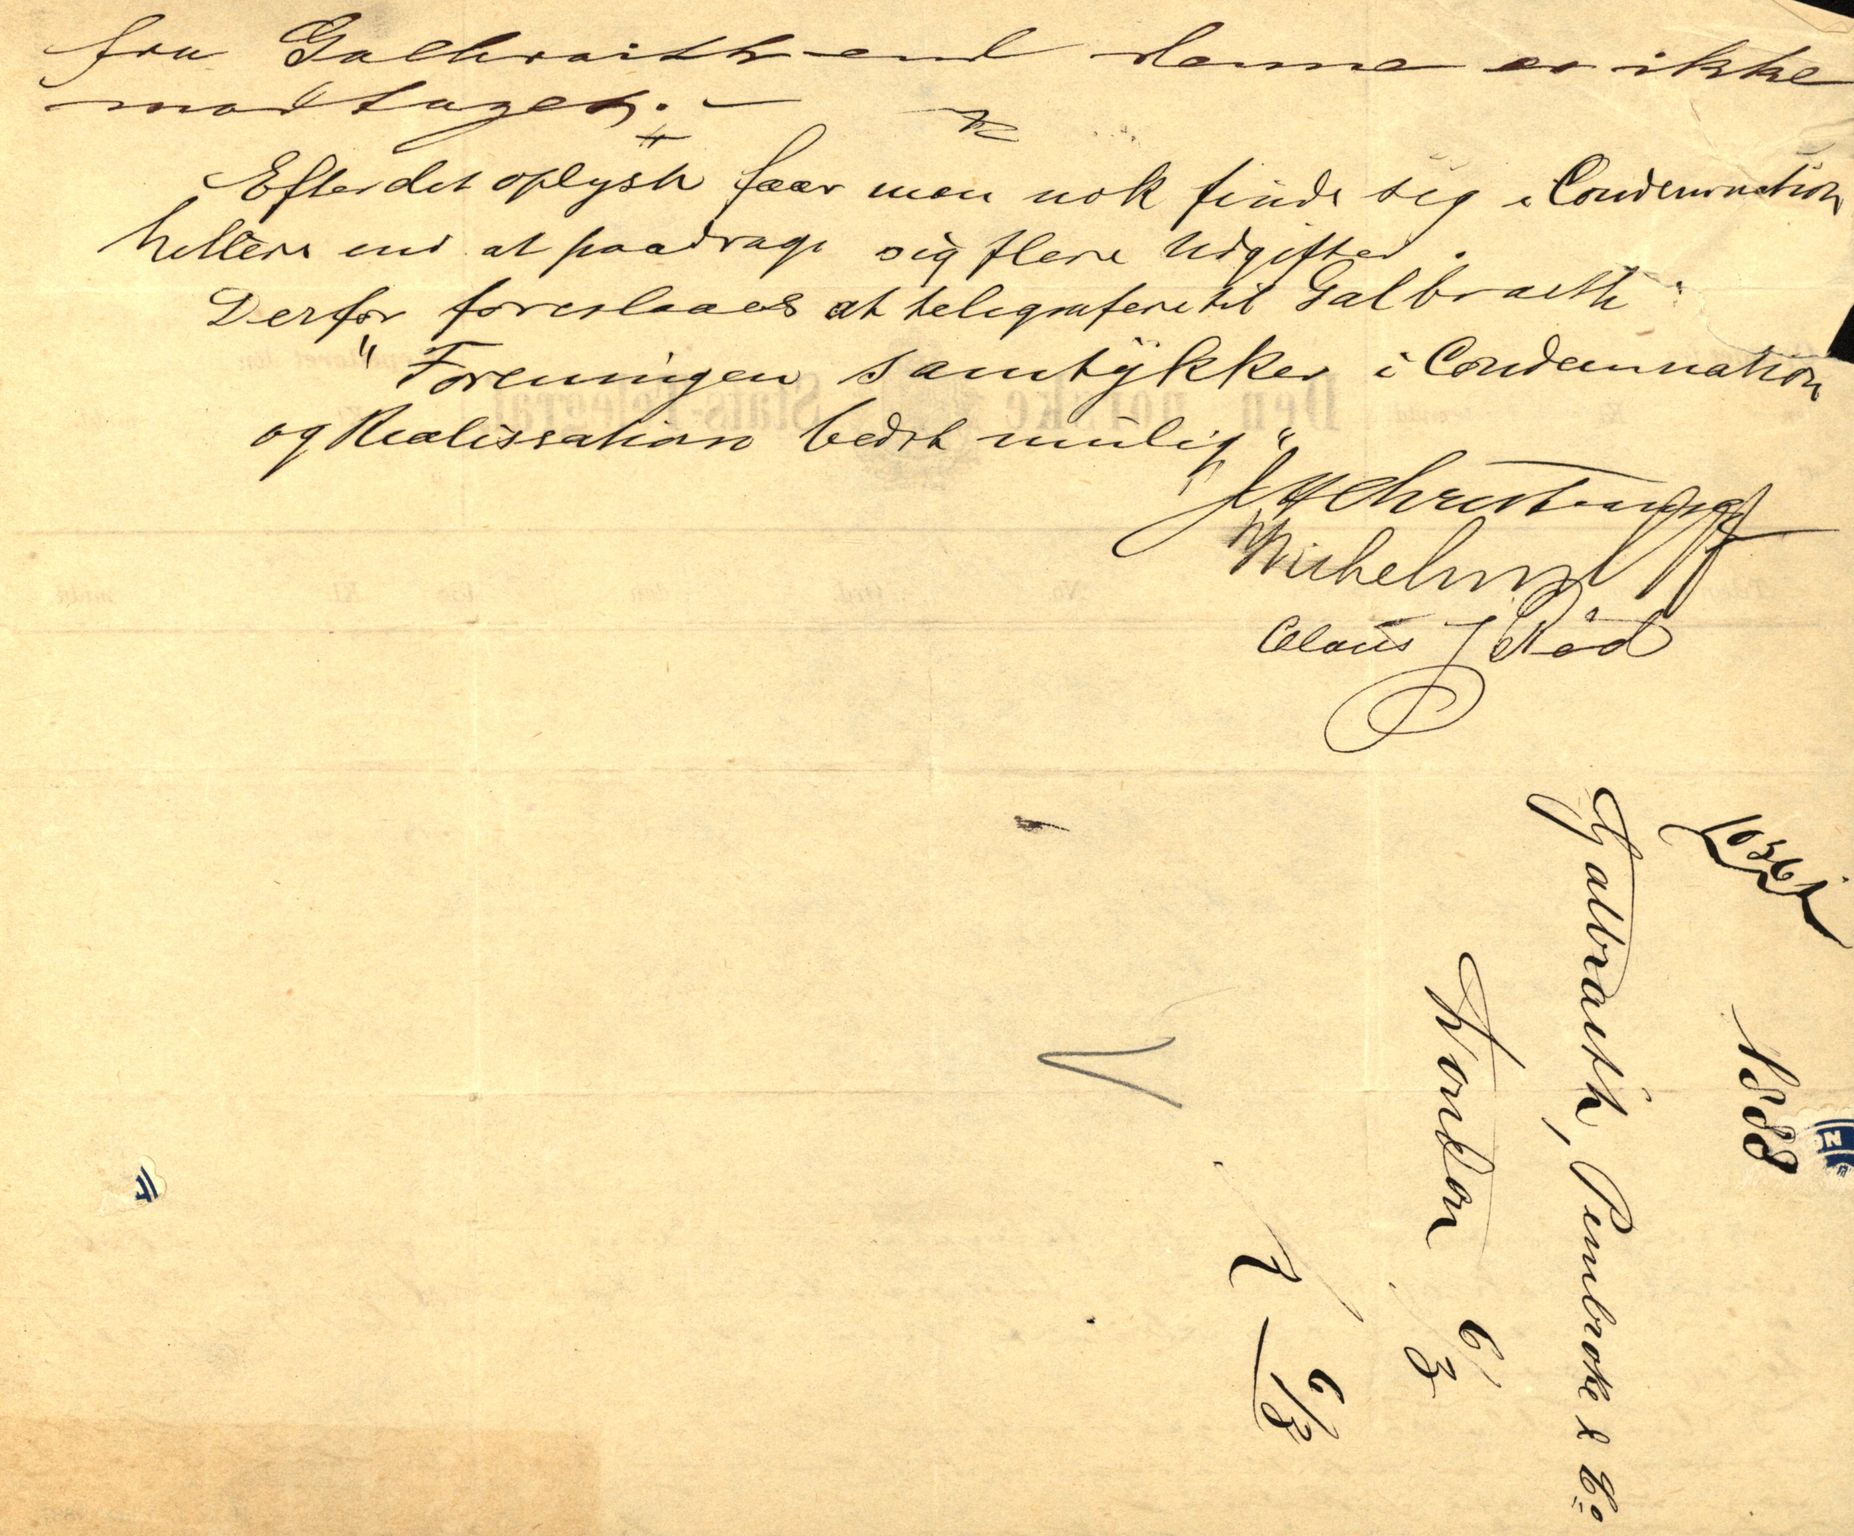 fra Galbraith end denne er ikke
modtaget. —
Efter det oplyste faar man nok finde sig i Condemnation
hellere end at paadrage sig flere Udgifter.
Derfor foreslaaes at telegrafere til Galbraith
"Foreningen samtykker i Condemnation
og Realissation bedst mulig"
J H Christensen
Michelsen
Claus J Rød
1888
Galbraith, Pembroke & Co
London 6/3
6/3
Den norske Stats-Telegraf